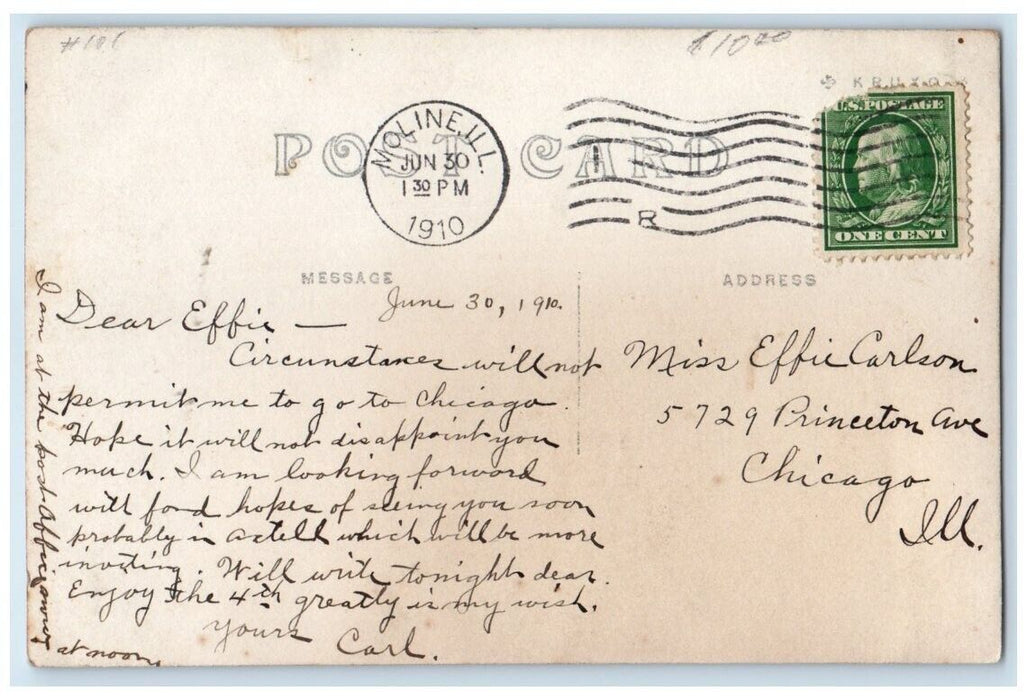 #101
$10.00
KRUXO
POST CARD
MOLINE, ILL.
JUN 30
1 30 PM
1910
R
U.S. POSTAGE
ONE CENT
MESSAGE
ADDRESS
June 30, 1910.
Dear Effie —
Circunstances will not
permit me to go to Chicago.
Hope it will not disappoint you
much. I am looking forward
with fond hopes of seeing you soon
probably in Axtell which will be more
inviting. Will write tonight dear.
Enjoy the 4th greatly is my wish.
Yours
Carl.
I am at the post office now
at noon,
Miss Effie Carlson
5729 Princeton Ave
Chicago
Ill.